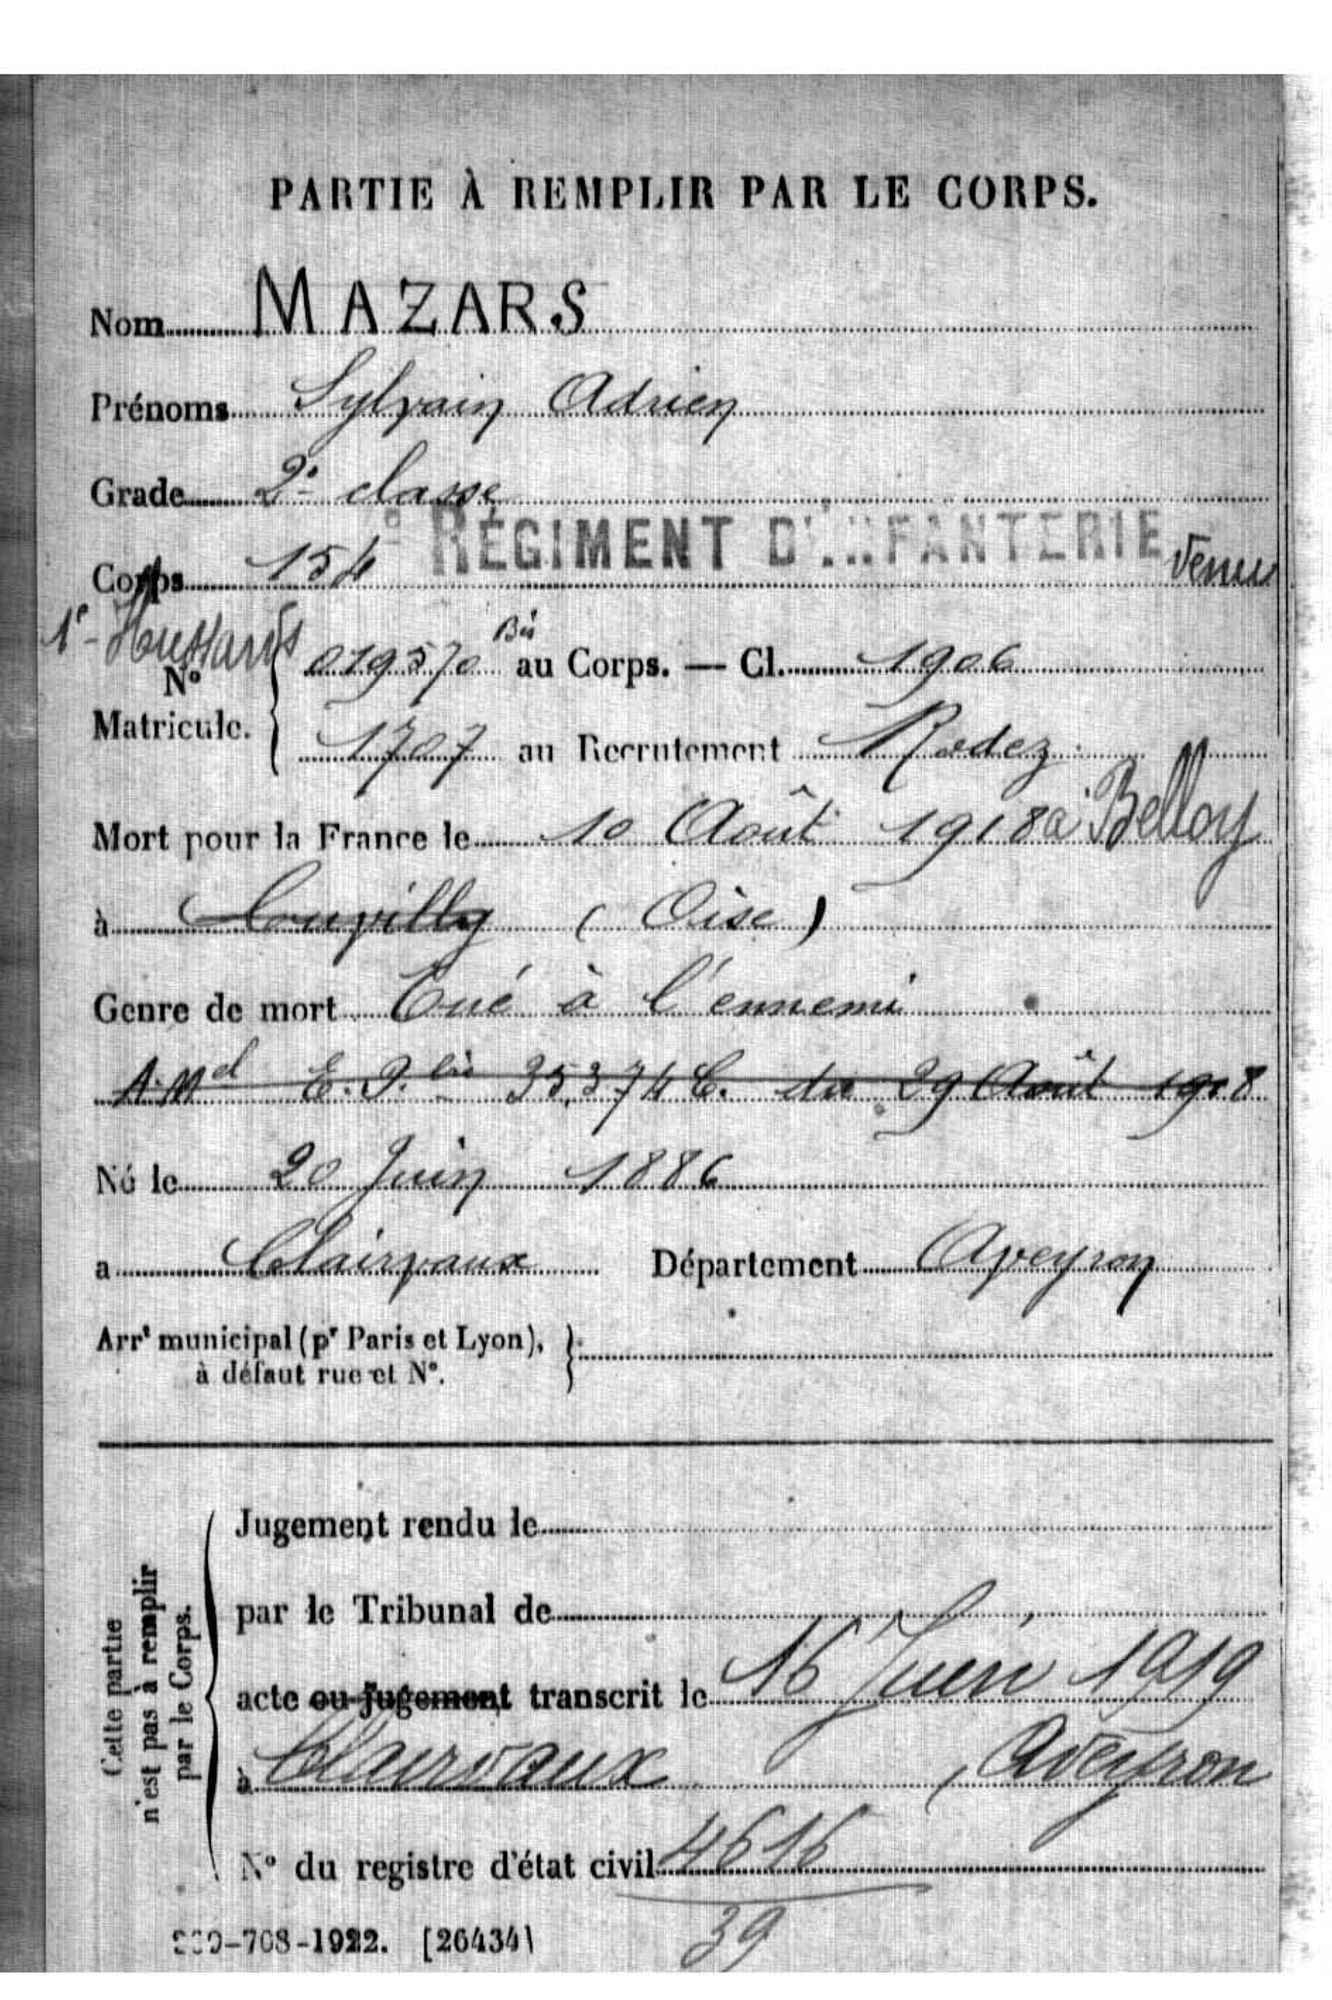 PARTIE À REMPLIR PAR LE CORPS.
Nom MAZARS
Prénoms Sylvain Adrien
Grade 2e classe
Corps 154 e RÉGIMENT D'INFANTERIE venu
1e Hussards
No Matricule. 019570 Bis au Corps. — Cl. 1906
1707 au Recrutement Rodez
Mort pour la France le 10 Août 1918 à Belloy
à Couvilly (Oise)
Genre de mort Tué à l'ennemi
A.Md E.P. bis 35.374 C. du 29 Août 1918
Né le 20 Juin 1886
a Clairvaux Département Aveyron
Arrt municipal (pr Paris et Lyon),
à défaut rue et No.
Cette partie
n'est pas à remplir
par le Corps.
Jugement rendu le
par le Tribunal de
acte ou jugement transcrit le 16 Juin 1919
à Clairvaux, Aveyron
No du registre d'état civil 4616
39
-708-1922. [26434]